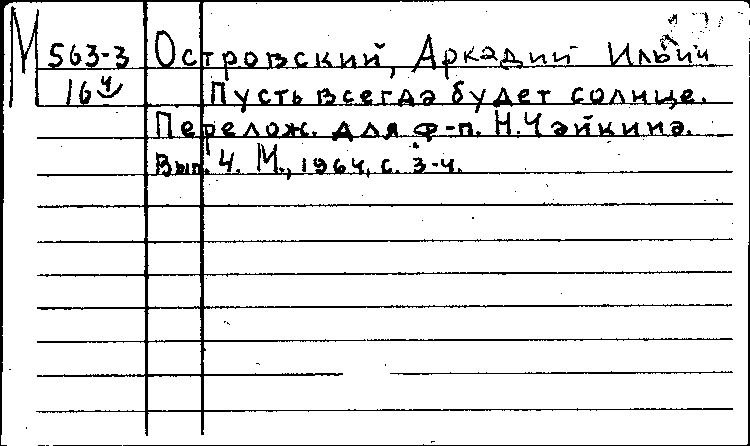 М 563-3 Островский, Аркадий Ильич
16 ч Пусть всегда будет солнце.
Перелож. для ф-п. Н. Чайкина.
Вып. 4. М., 1964, с. 3-4.